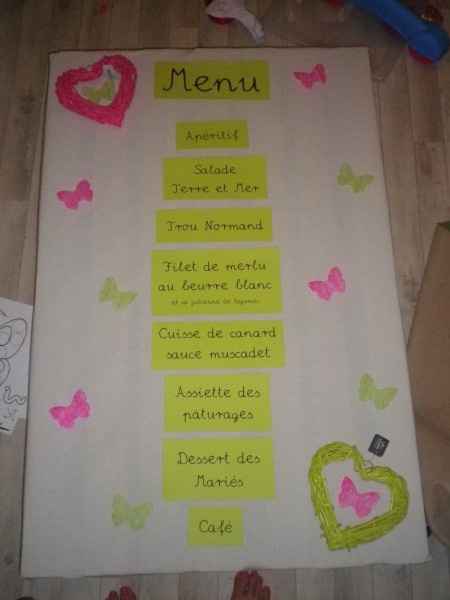 Menu
Apéritif
Salade
Terre et Mer
Trou Normand
Filet de merlu
au beurre blanc
et sa julienne de légumes
Cuisse de canard
sauce muscadet
Assiette des
pâturages
Dessert des
Mariés
Café